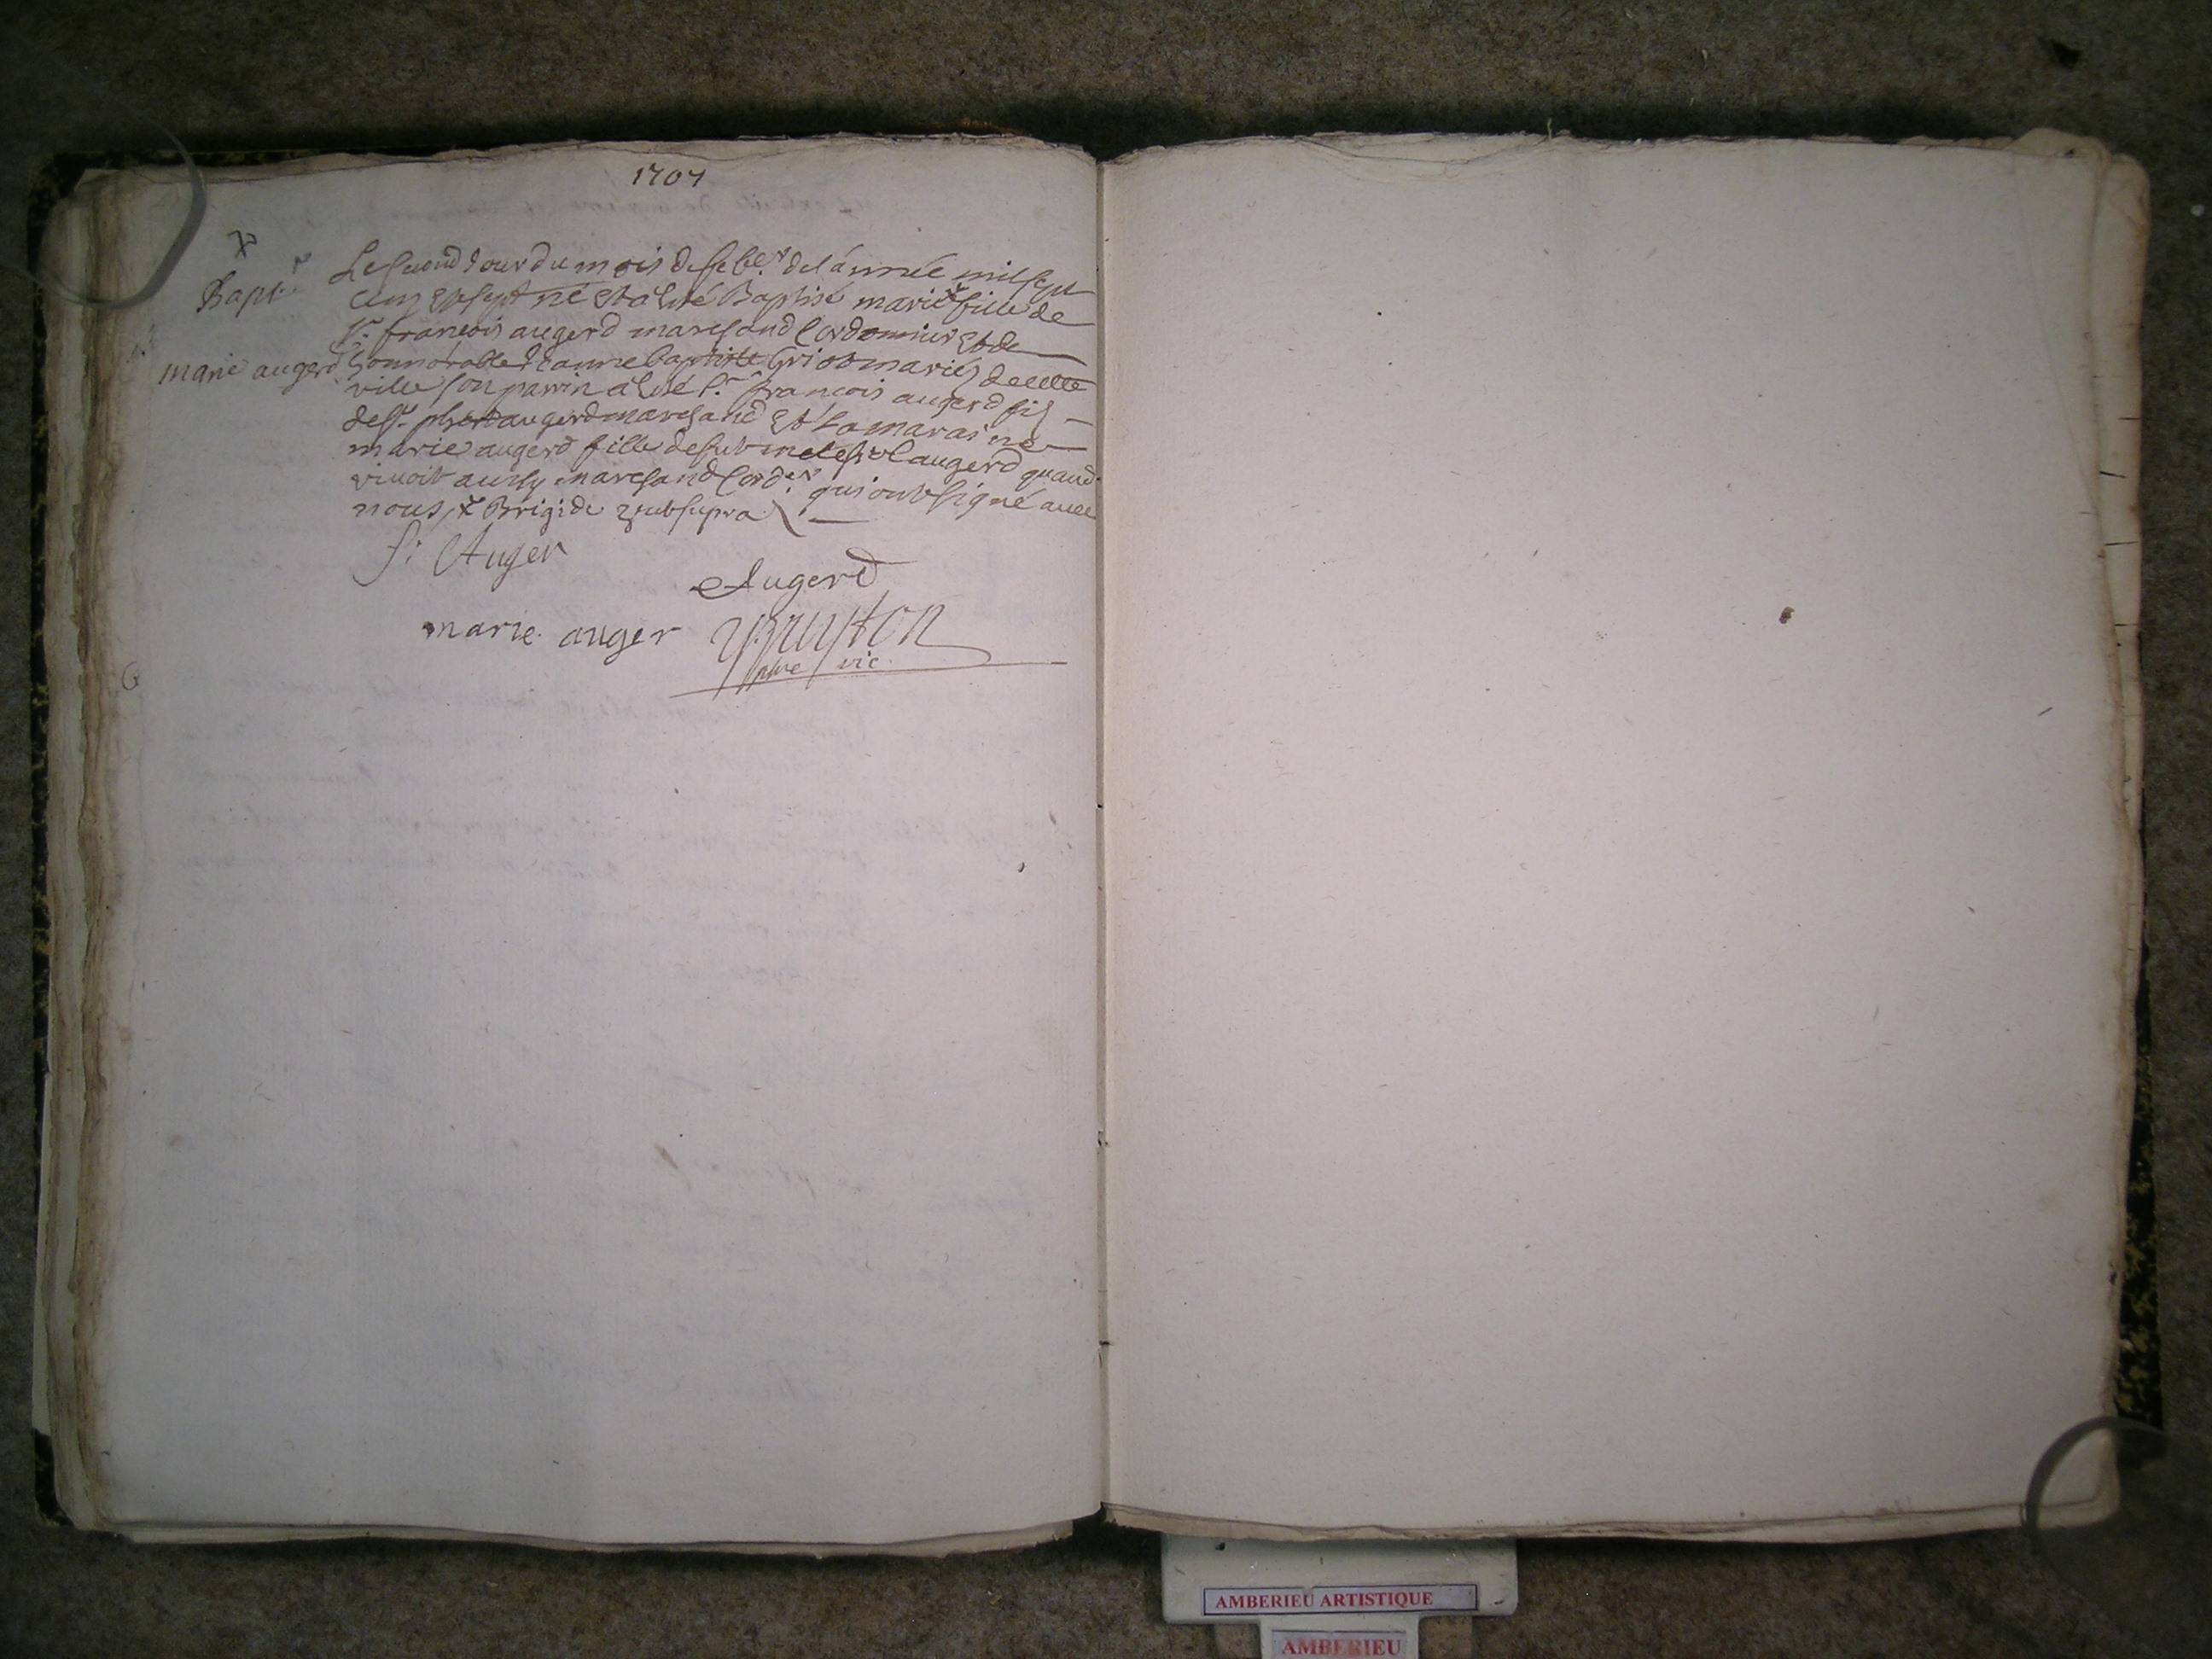 1707
Bapt.
marie augerd
Le second Jour du mois de de l'année mil sept
cens et sept né et a esté Baptisé marie x fille de
Sr. françois augerd marchand Cordonnier et de
honnorable Jeanne baptiste Griot mariés de cette
ville son parrin a esté Sr. françois augerd fils
de Sr. augerd marchand et La maraine
marie augerd fille de fut augerd quand
vivoit aussy marchand Cord.er qui ont signé avec
nous, x Brigide ut supra
f: Auger
Augerd
marie auger
pbre vic.
AMBERIEU ARTISTIQUE
AMBERIEU